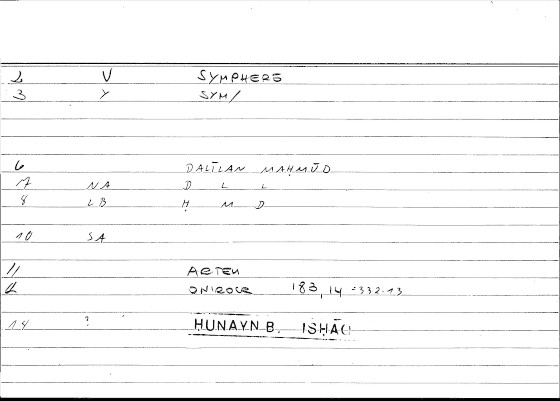 2 V SYMPHERŌ
3 Y SYM/
6 DALĪLAN MAḤMŪD
7 NA D L L
8 LB Ḥ M D
10 SA
11 ARTEM
12 ONIROCR 183,14 =332.13
14 ? ḤUNAYN B. ISḤĀQ